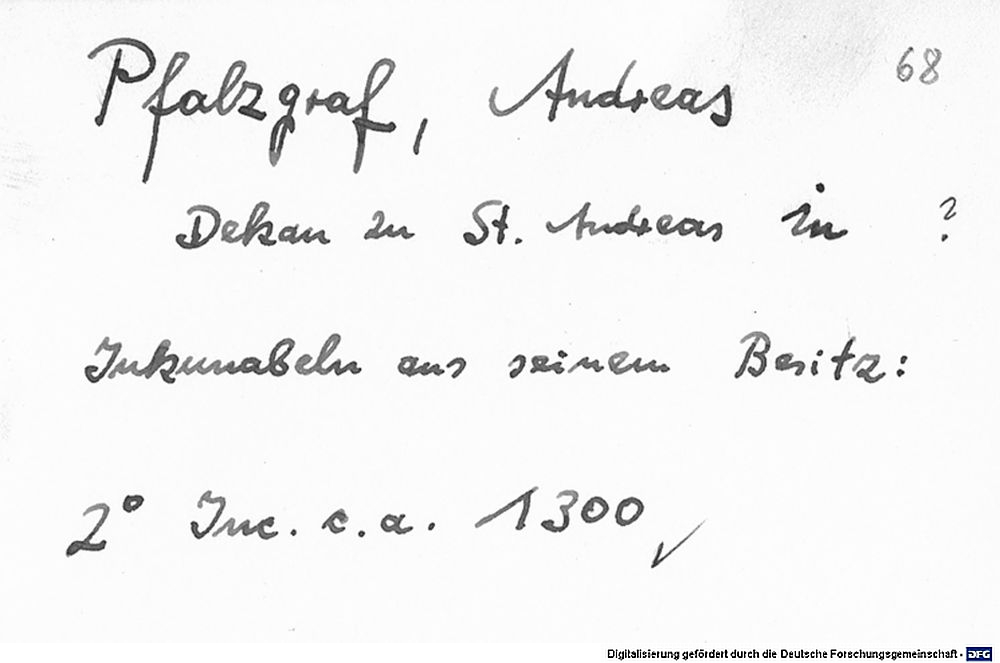 Pfalzgraf, Andreas 68
Dekan zu St. Andreas in ?
Inkunabeln aus seinem Besitz:
2° Inc. c. a. 1300 ✓
Digitalisierung gefördert durch die Deutsche Forschungsgemeinschaft - DFG